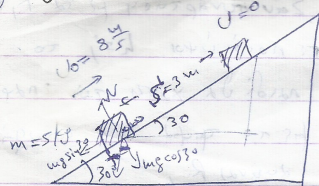 v=0
v₀ = 8 m/s
N
S=3m
m=5kg
30
mgsin30
mgcos30
30